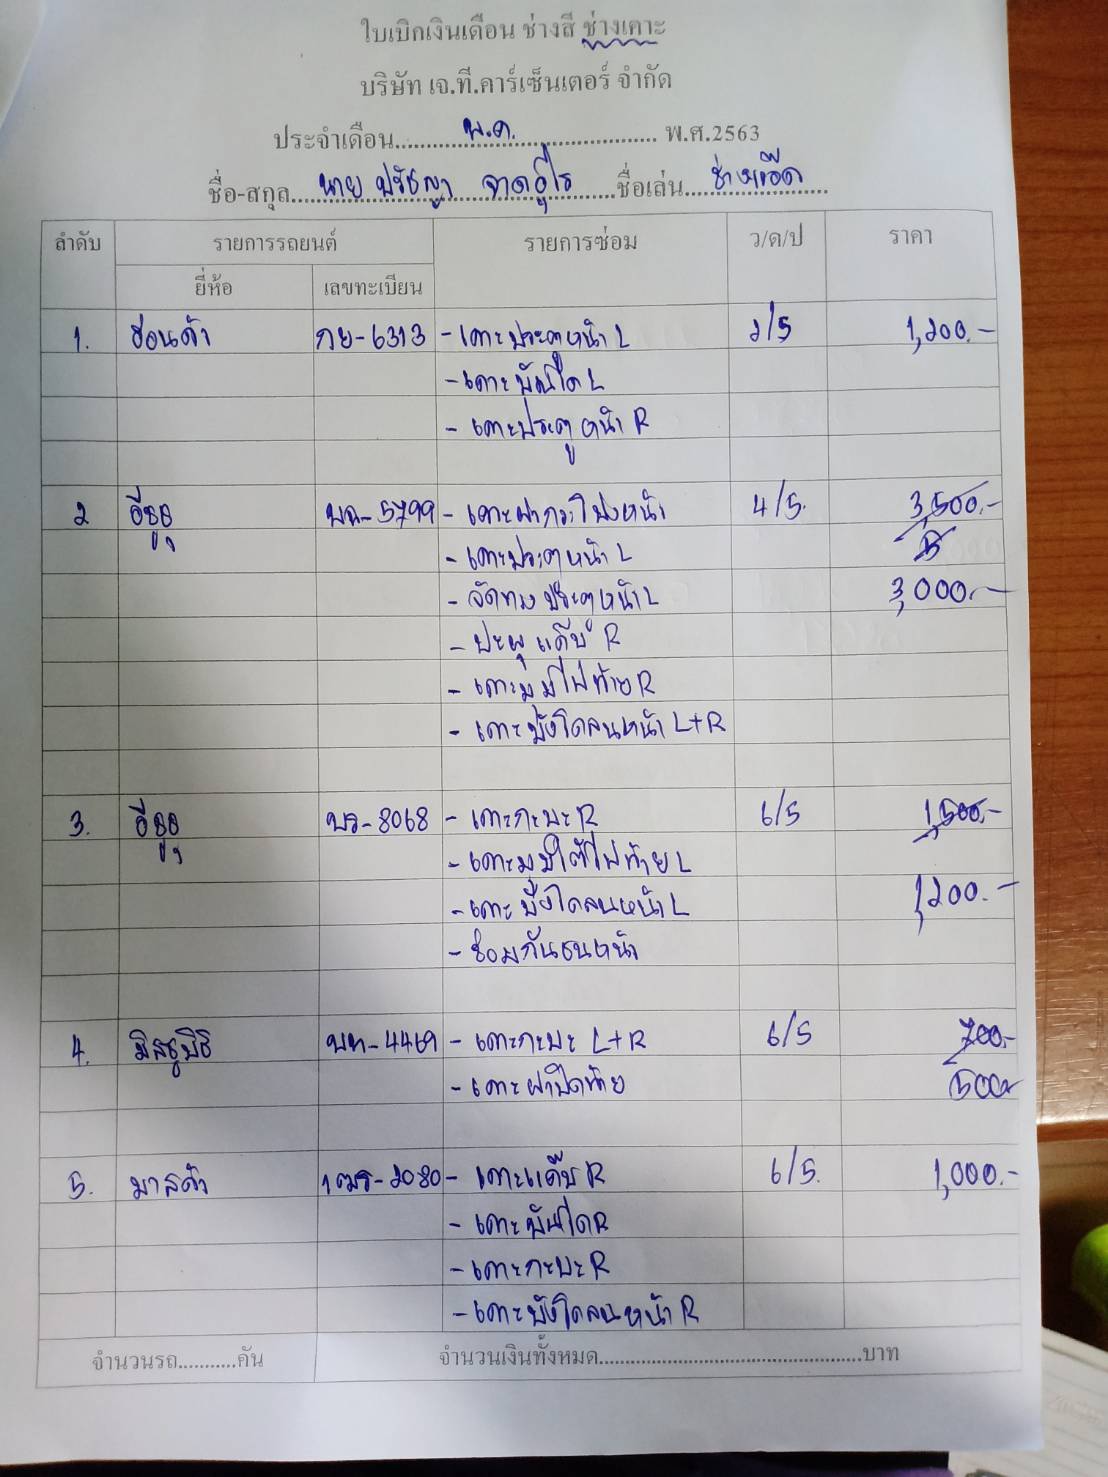 ใบเบิกเงินเดือน ช่างสี ช่างเคาะ
บริษัท เจ.ที.คาร์เซ็นเตอร์ จำกัด
ประจำเดือน พ.ค. พ.ศ.2563
ชื่อ-สกุล นาย ปรัชญา ชื่อเล่น
ลำดับ รายการรถยนต์ รายการซ่อม ว/ด/ป ราคา
ยี่ห้อ เลขทะเบียน
1. ฮอนด้า กย-6313 - เคาะประตูหน้า L 2/5 1,200.-
- เคาะบันได L
- เคาะประตูหน้า R
2 อีซูซุ บฉ-5799 - เคาะฝากระโปรงหน้า 4/5. 3,500.-
- เคาะประตูหน้า L
- จัดทรงประตูหน้า L 3,000.-
- ปะผุแค๊บ R
- เคาะมุมไฟท้าย R
- เคาะบังโคลนหน้า L+R
3. อีซูซุ บร-8068 - เคาะกะบะ R 6/5 1,500.-
- เคาะมุมใต้ไฟท้าย L
- เคาะบังโคลนหน้า L 1,200.-
- ซ่อมกันชนหน้า
4. มิสซูบิชิ บท-4469 - เคาะกะบะ L+R 6/5 700.-
- เคาะฝาปิดท้าย 500.-
5. มาสด้า 1ฒร-2080 - เคาะแค๊บ R 6/5. 1,000.-
- เคาะบันได R
- เคาะกะบะ R
- เคาะบังโคลนหน้า R
จำนวนรถ...........คัน จำนวนเงินทั้งหมด..................................................บาท